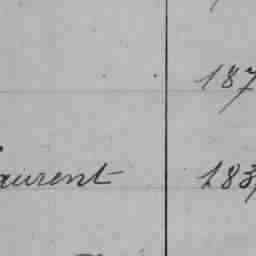 187
aurent 183